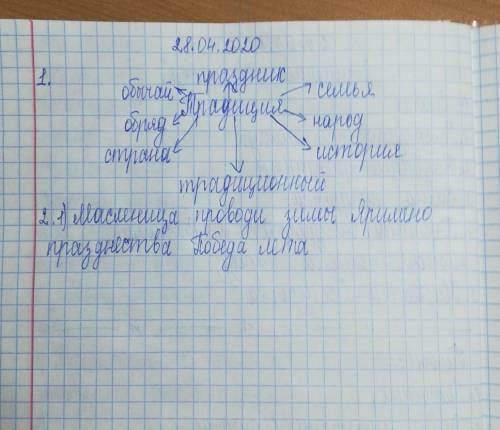 28.04.2020
1. праздник
обычай семья
Традиция
обряд народ
страна история
традиционный
2. 1) Масленица проводи зимы Яримано
празднества Победа лета